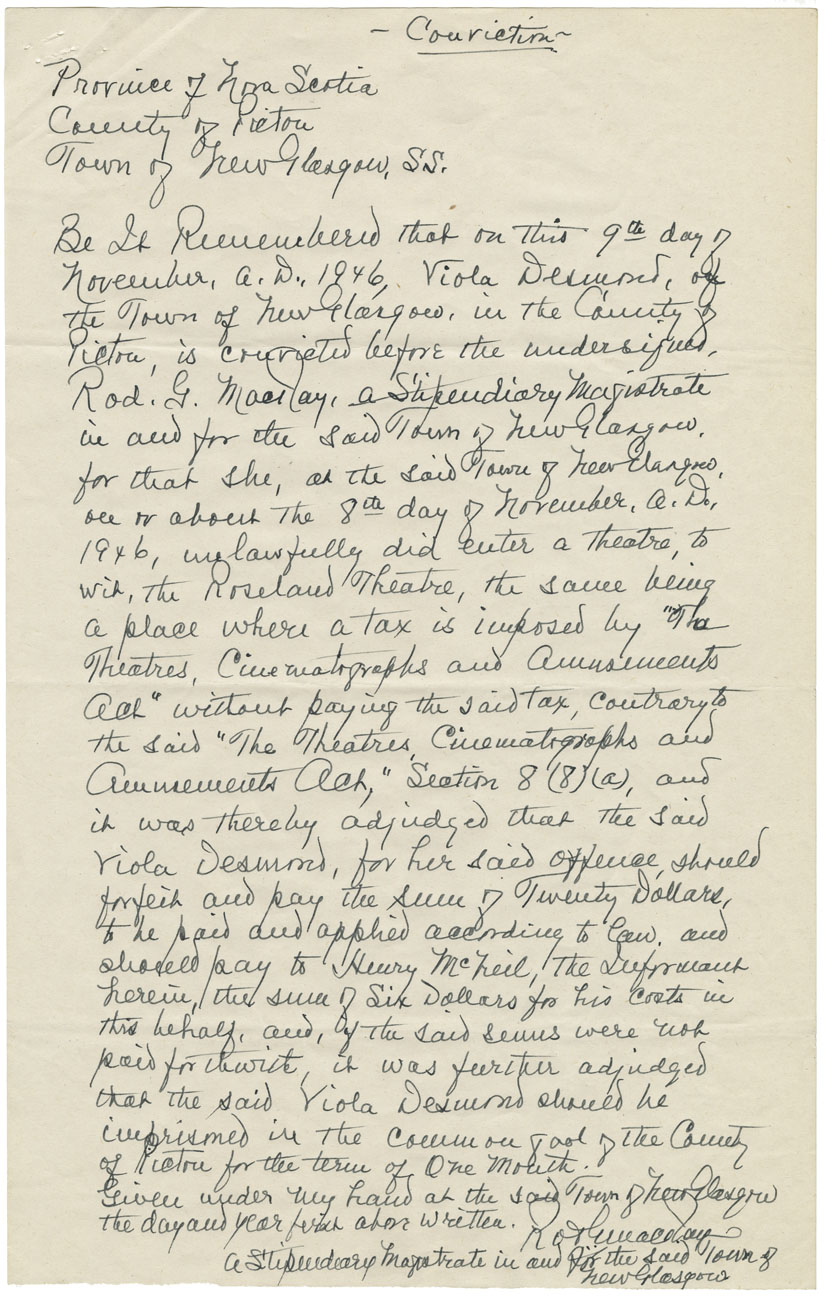 - Conviction -
Province of Nova Scotia
County of Pictou
Town of New Glasgow, S.S.
Be It Remembered that on this 9th day of
November, A.D., 1946, Viola Desmond, of
the Town of New Glasgow, in the County of
Pictou, is convicted before the undersigned,
Rod. G. MacKay, a Stipendiary Magistrate
in and for the said Town of New Glasgow,
for that she, at the said Town of New Glasgow,
on or about the 8th day of November, A.D.,
1946, unlawfully did enter a theatre, to
wit, the Roseland Theatre, the same being
a place where a tax is imposed by "The
Theatres, Cinematographs and Amusements
Act" without paying the said tax, contrary to
the said "The Theatres, Cinematographs and
Amusements Act," Section 8 (8) (a), and
it was thereby adjudged that the said
Viola Desmond, for her said offence, should
forfeit and pay the sum of Twenty Dollars,
to be paid and applied according to law, and
should pay to Henry McNeil, the Informant
herein, the sum of Six Dollars for his costs in
this behalf, and, if the said sums were not
paid forthwith, it was further adjudged
that the said Viola Desmond should be
imprisoned in the common gaol of the County
of Pictou for the term of One Month.
Given under my hand at the said Town of New Glasgow
the day and year first above written.
Rod G MacKay
A Stipendiary Magistrate in and for the said Town of
New Glasgow